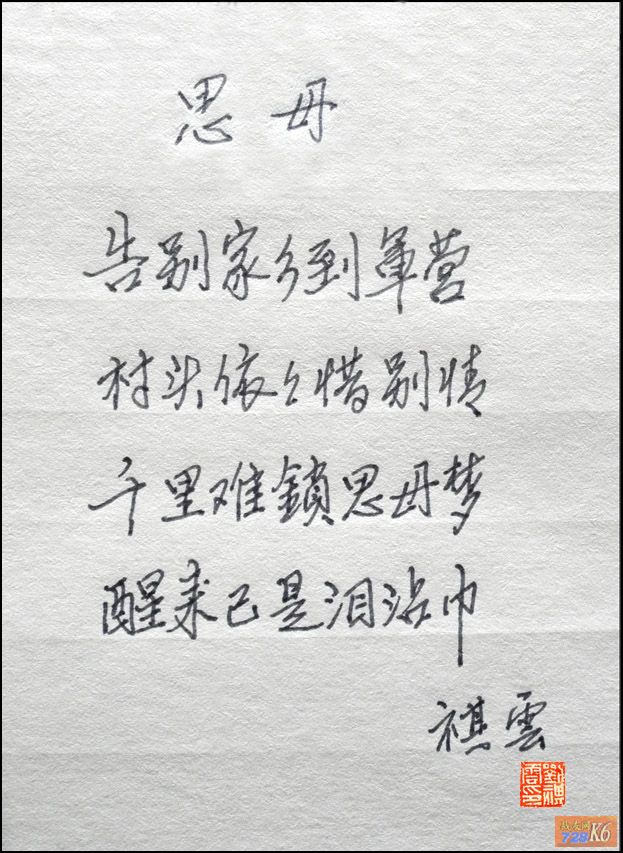 思母
告别家乡到軍营
村头依々惜别情
千里难鎖思母梦
醒来已是泪沾巾
祺雲
战友网
728K6